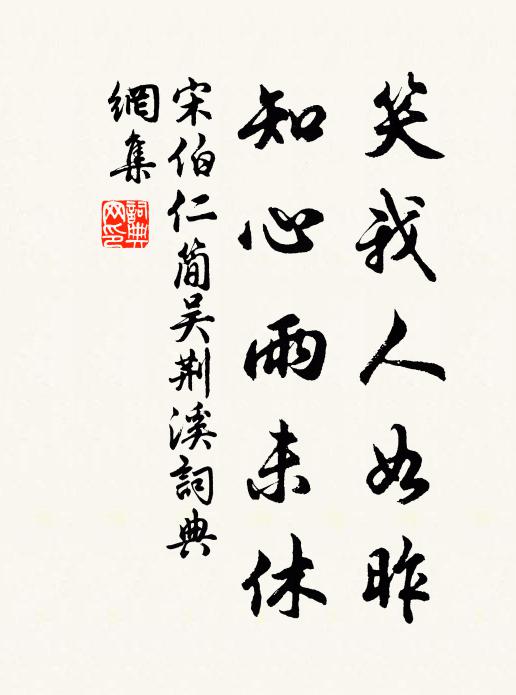 笑我人如昨
知心雨未休
宋伯仁简吴荆溪詞典
網集
詞典網印